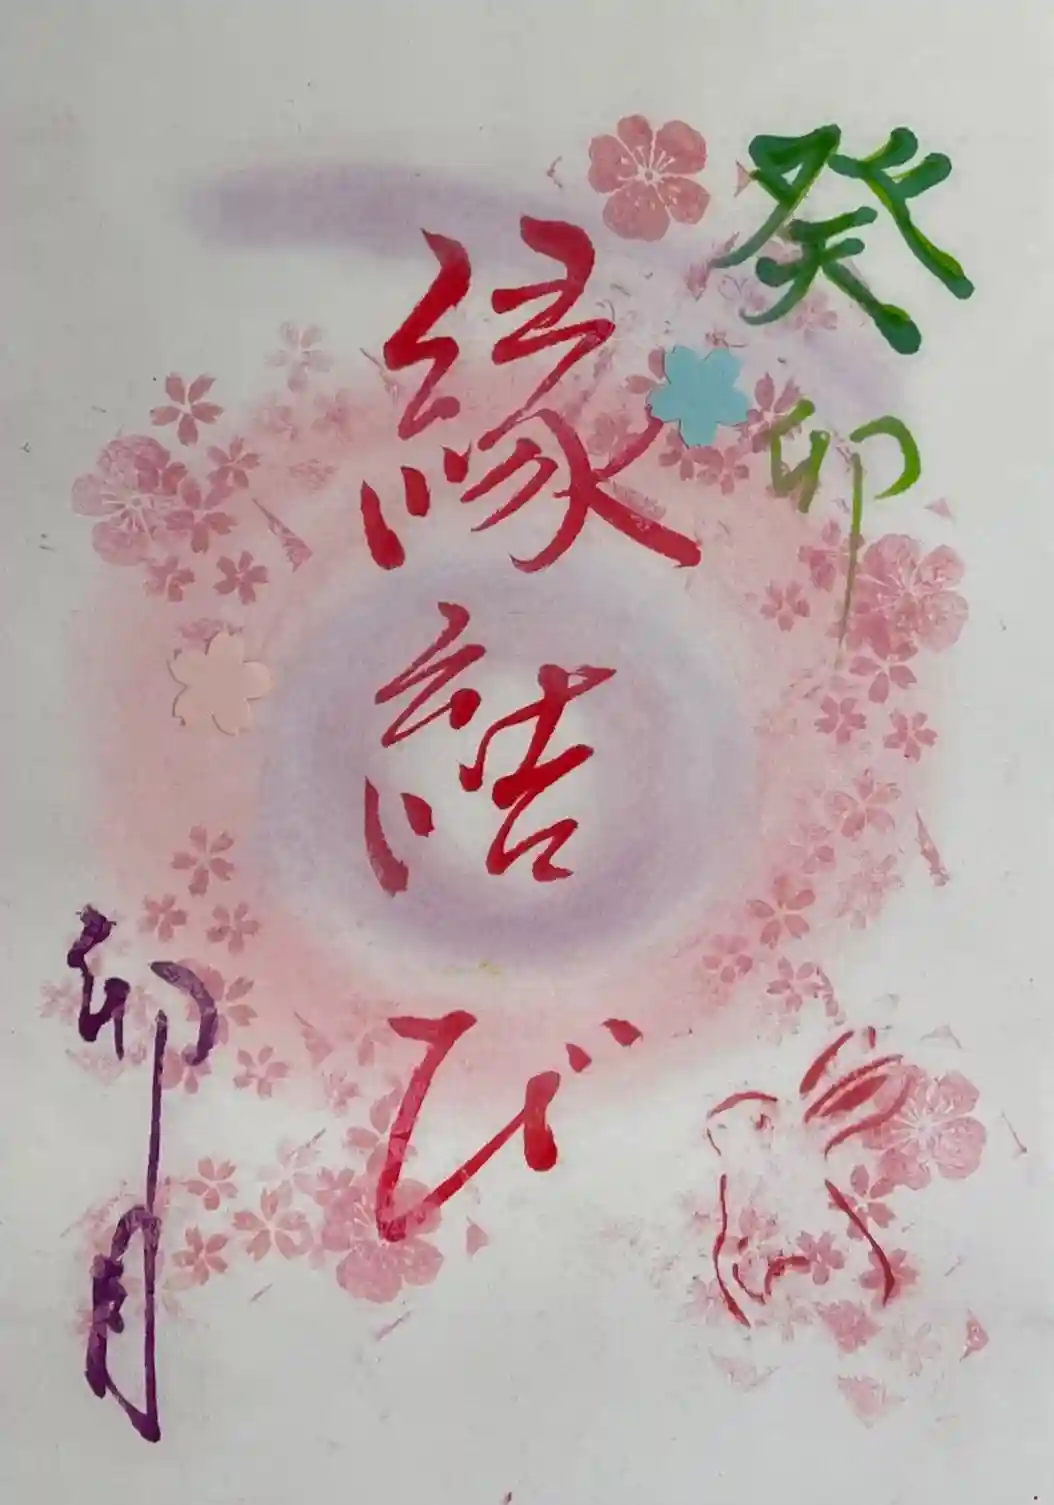 癸卯
縁結び
卯月